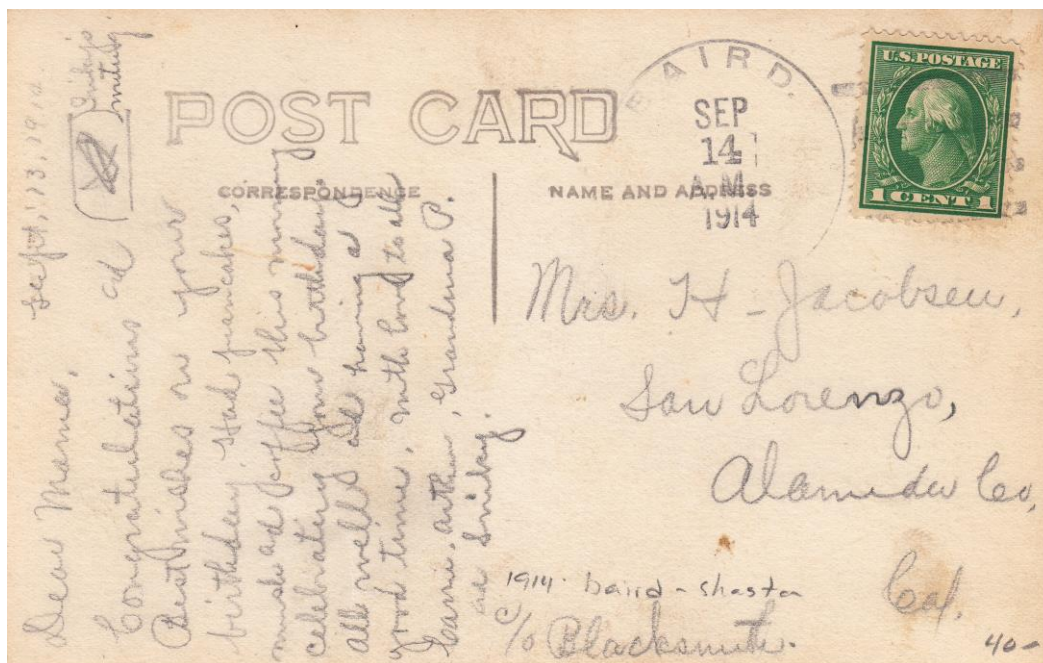 POST CARD
CORRESPONDENCE
NAME AND ADDRESS
BAIRD.
SEP
14
A.M.
1914
U.S. POSTAGE
1 CENT 1
Sept, 13, 1914
Dear Mama,
Congratulations ad
Best wishes on your
birthday, Had pancakes,
mush ad coffee this morning
celebrating your birthday.
all well ad having a
good time, with love to all
Carrie, Arthur, Grandma P.
ad
Mrs. H - Jacobsen,
San Lorenzo,
Alameda Co,
Cal.
c/o Blacksmith.
1914 - baird - shasta
40-